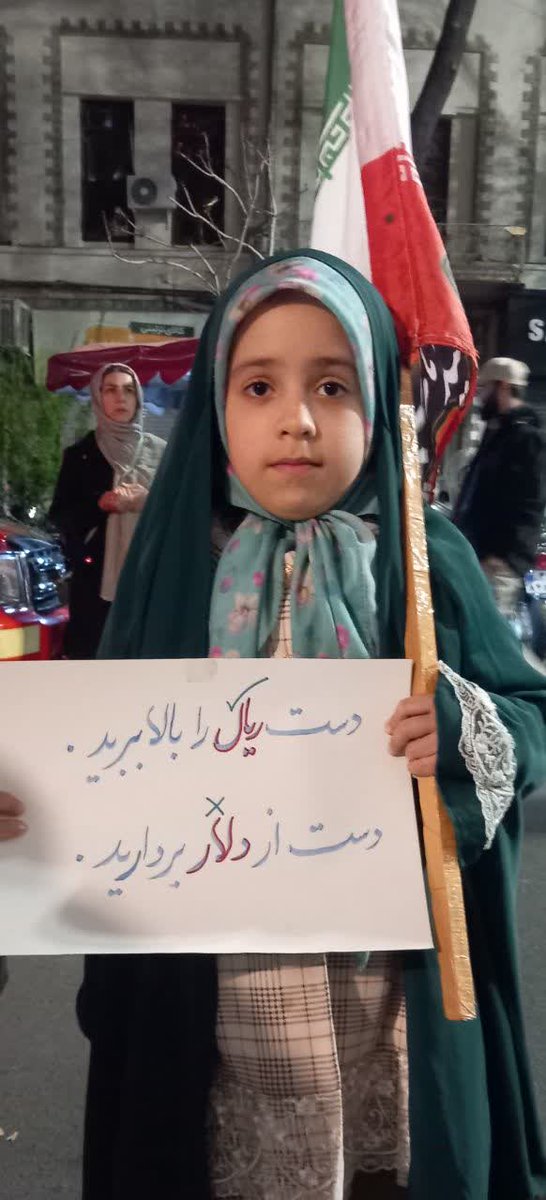 دست ریال را بالا ببرید.
دست از دلار بردارید.